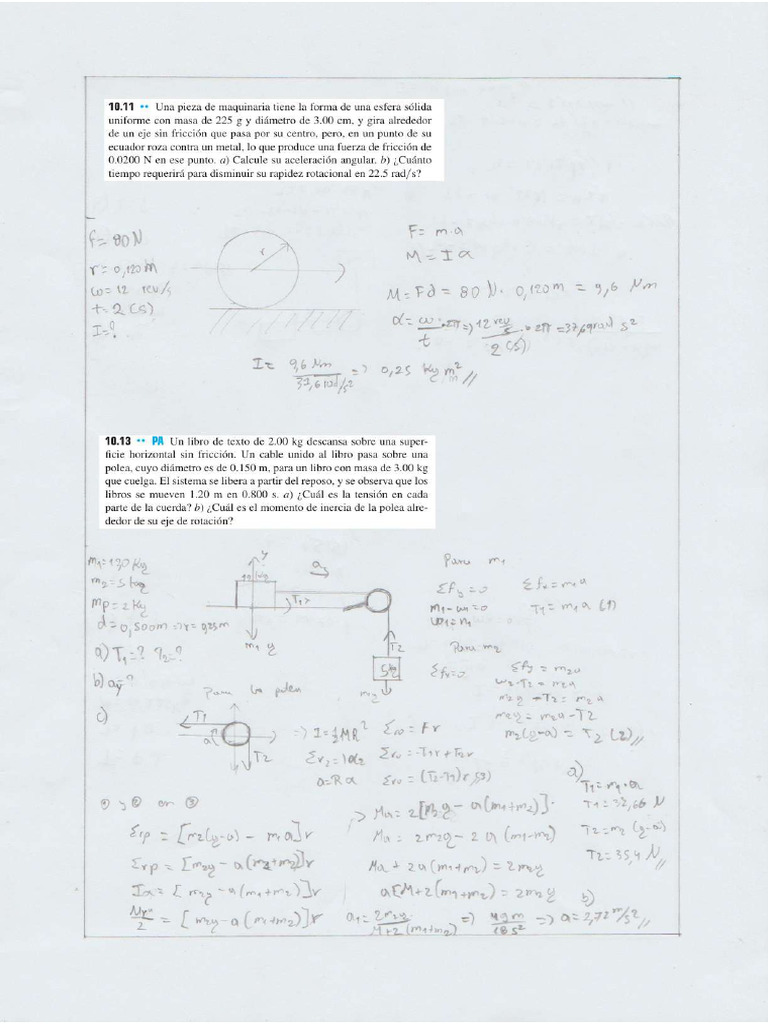 10.11 •• Una pieza de maquinaria tiene la forma de una esfera sólida
uniforme con masa de 225 g y diámetro de 3.00 cm, y gira alrededor
de un eje sin fricción que pasa por su centro, pero, en un punto de su
ecuador roza contra un metal, lo que produce una fuerza de fricción de
0.0200 N en ese punto. a) Calcule su aceleración angular. b) ¿Cuánto
tiempo requerirá para disminuir su rapidez rotacional en 22.5 rad/s?
f= 80 N
r = 0,120 m
ω= 12 rev/s
t= 2 (s)
I=?
r
F= m.a
M = I α
M = Fd = 80 N. 0,120 m = 9,6 Nm
α= ω/t .2π => 12 rev/s / 2 (s) . 2π = 37,69 rad s²
I= 9,6 Nm / 37,6 rad/s² => 0,25 kg m² //
10.13 •• PA Un libro de texto de 2.00 kg descansa sobre una super-
ficie horizontal sin fricción. Un cable unido al libro pasa sobre una
polea, cuyo diámetro es de 0.150 m, para un libro con masa de 3.00 kg
que cuelga. El sistema se libera a partir del reposo, y se observa que los
libros se mueven 1.20 m en 0.800 s. a) ¿Cuál es la tensión en cada
parte de la cuerda? b) ¿Cuál es el momento de inercia de la polea alre-
dedor de su eje de rotación?
m1=130 Kg
mp=2 Kg
d=0,500m => r= 0,25m
a) T1=? T2=?
b) a=?
c)
y
T1
m1 g
T2
5kg
m2
Para m1
Σfy = 0
Σfx = m1 a
T1 = m1 a (1)
Para m2
Σfx=0
Σfy = m2 a
w2 - T2 = m2 a
m2 g - T2 = m2 a
m2 g = m2 a - T2
m2 (g-a) = T2 (2) //
Para la polea
T1
T2
=> I = ½ MR²
a=Rα
Στo = Fr
Στo = -T1 r + T2 r
Στo = (T2-T1) r (3)
① y ② en ③
Στp = [m2(g-a) - m1 a] r
Στp = [m2 g - a(m2+m2)] r
Iα = [m2 g - a(m1+m2)] r
Mr/2 = [m2 g - a(m1+m2)] r
Ma = 2[m2 g - a(m1+m2)].
Ma = 2m2g - 2a (m1-m2)
Ma + 2a(m1+m2) = 2m2g
a[M+2(m1+m2) = 2m2g
a1 = 2m2g / M+2(m1+m2) => => a= 2,72 m/s² //
a)
T1 = m1.a
T1 = 32,66 N
T2 = m2 (g-a)
T2 = 35,4 N //
b)